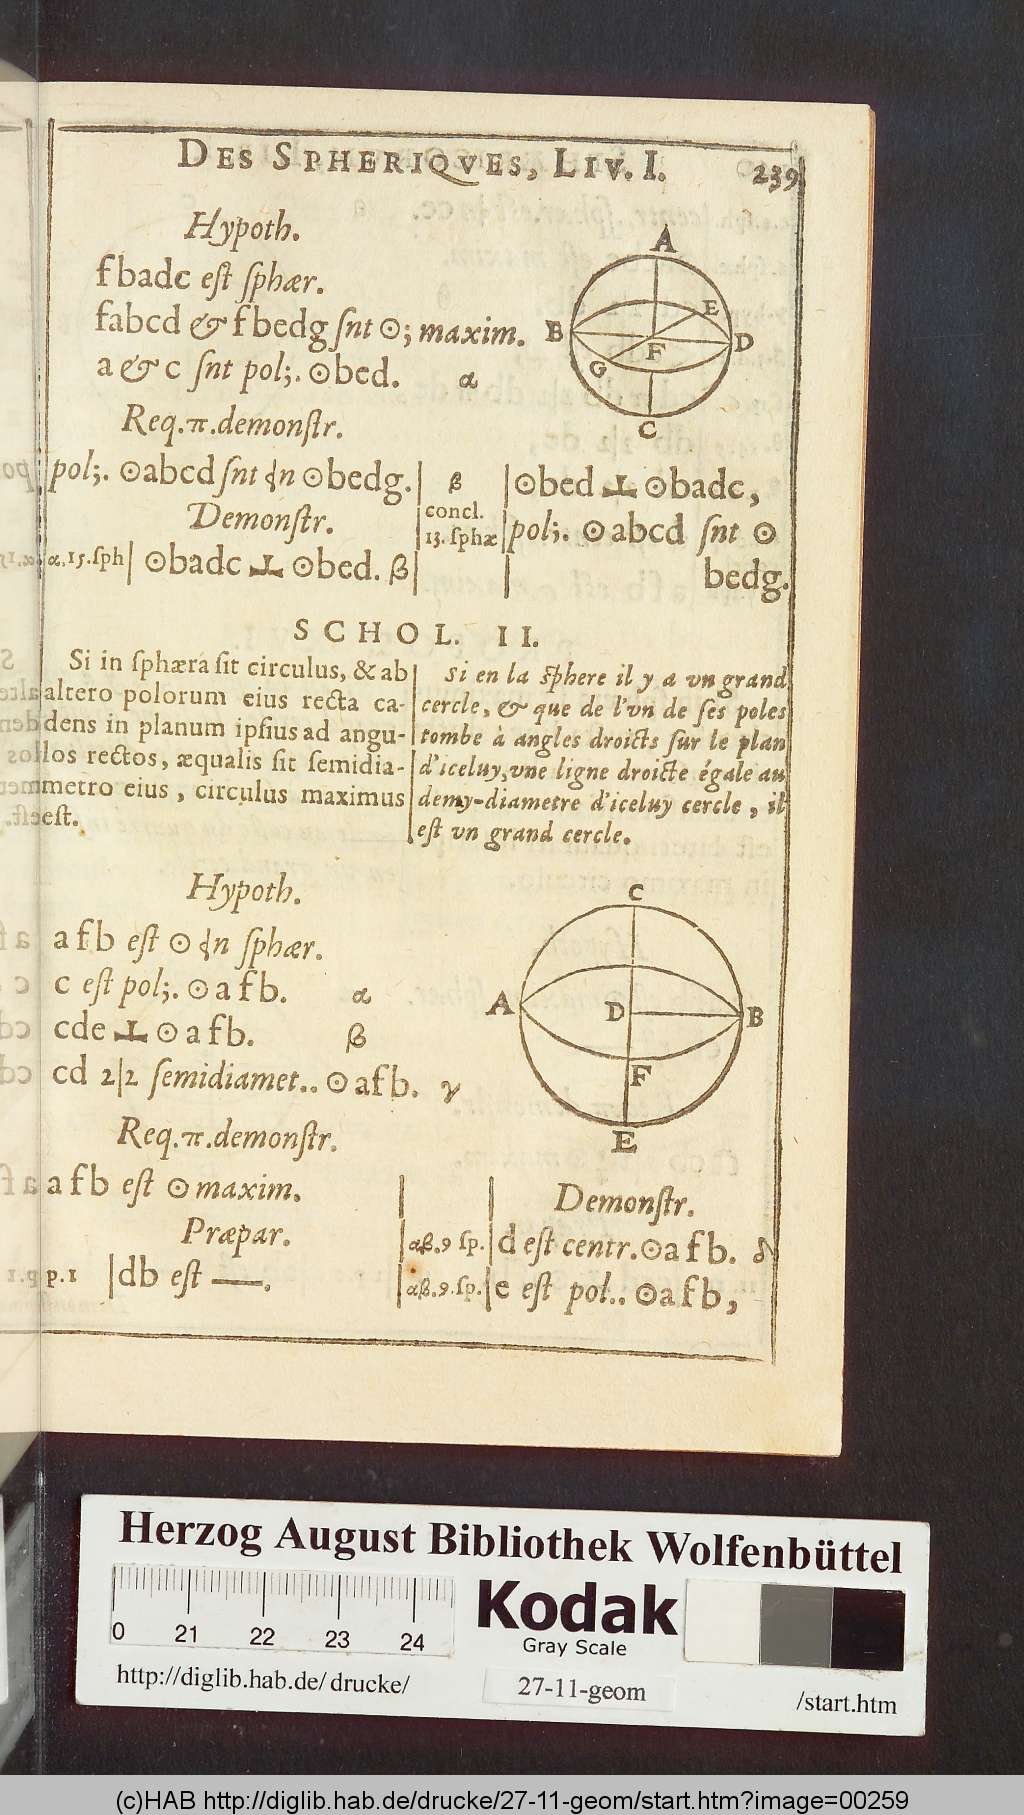 DES SPHERIQVES, LIV. I. 239
Hypoth.
fbadc est sphær.
fabcd & fbedg snt ⊙; maxim.
a & c snt pol;. ⊙bed. α
Req.π.demonstr.
A
B
E
D
F
G
C
pol;. ⊙abcd snt ⊙bedg.
Demonstr.
α.15.sph | ⊙badc ⊥ ⊙bed. β
β | ⊙bed ⊥ ⊙badc,
concl.
13. sphæ | pol;. ⊙abcd snt ⊙
bedg.
SCHOL. II.
Si in sphæra sit circulus, & ab
altero polorum eius recta ca-
dens in planum ipsius ad angu-
los rectos, æqualis sit semidia-
metro eius, circulus maximus
est.
Si en la sphere il y a vn grand
cercle, & que de l'vn de ses poles
tombe à angles droicts sur le plan
d'iceluy, vne ligne droicte égale au
demy-diametre d'iceluy cercle, il
est vn grand cercle.
Hypoth.
afb est ⊙ sphær.
c est pol;. ⊙afb. α
cde ⊥ ⊙afb. β
cd 2|2 semidiamet.. ⊙afb. γ
Req.π.demonstr.
afb est ⊙ maxim.
Præpar.
p.1 | db est —.
C
A
D
B
F
E
Demonstr.
αβ.9 sp. | d est centr. ⊙afb. δ
αβ.9.sp. | e est pol.. ⊙afb,
Herzog August Bibliothek Wolfenbüttel
0 21 22 23 24
Kodak
Gray Scale
http://diglib.hab.de/drucke/
27-11-geom
/start.htm
(c)HAB http://diglib.hab.de/drucke/27-11-geom/start.htm?image=00259